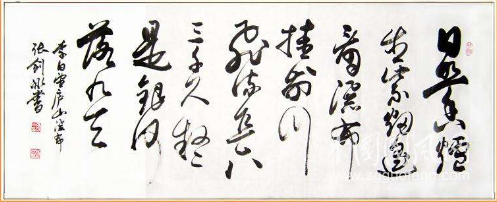 日照香爐
生紫烟遥
看瀑布
挂前川
飛流直下
三千尺疑
是銀河
落九天
李白望庐山瀑布
张剑书